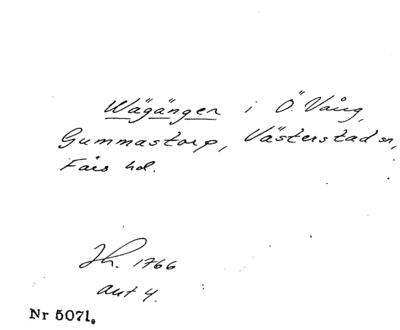 Wägängen i Ö. Vång,
Gummastorp, Västerstad sn,
Färs hd.
Jh. 1766
akt 4.
Nr 5071.